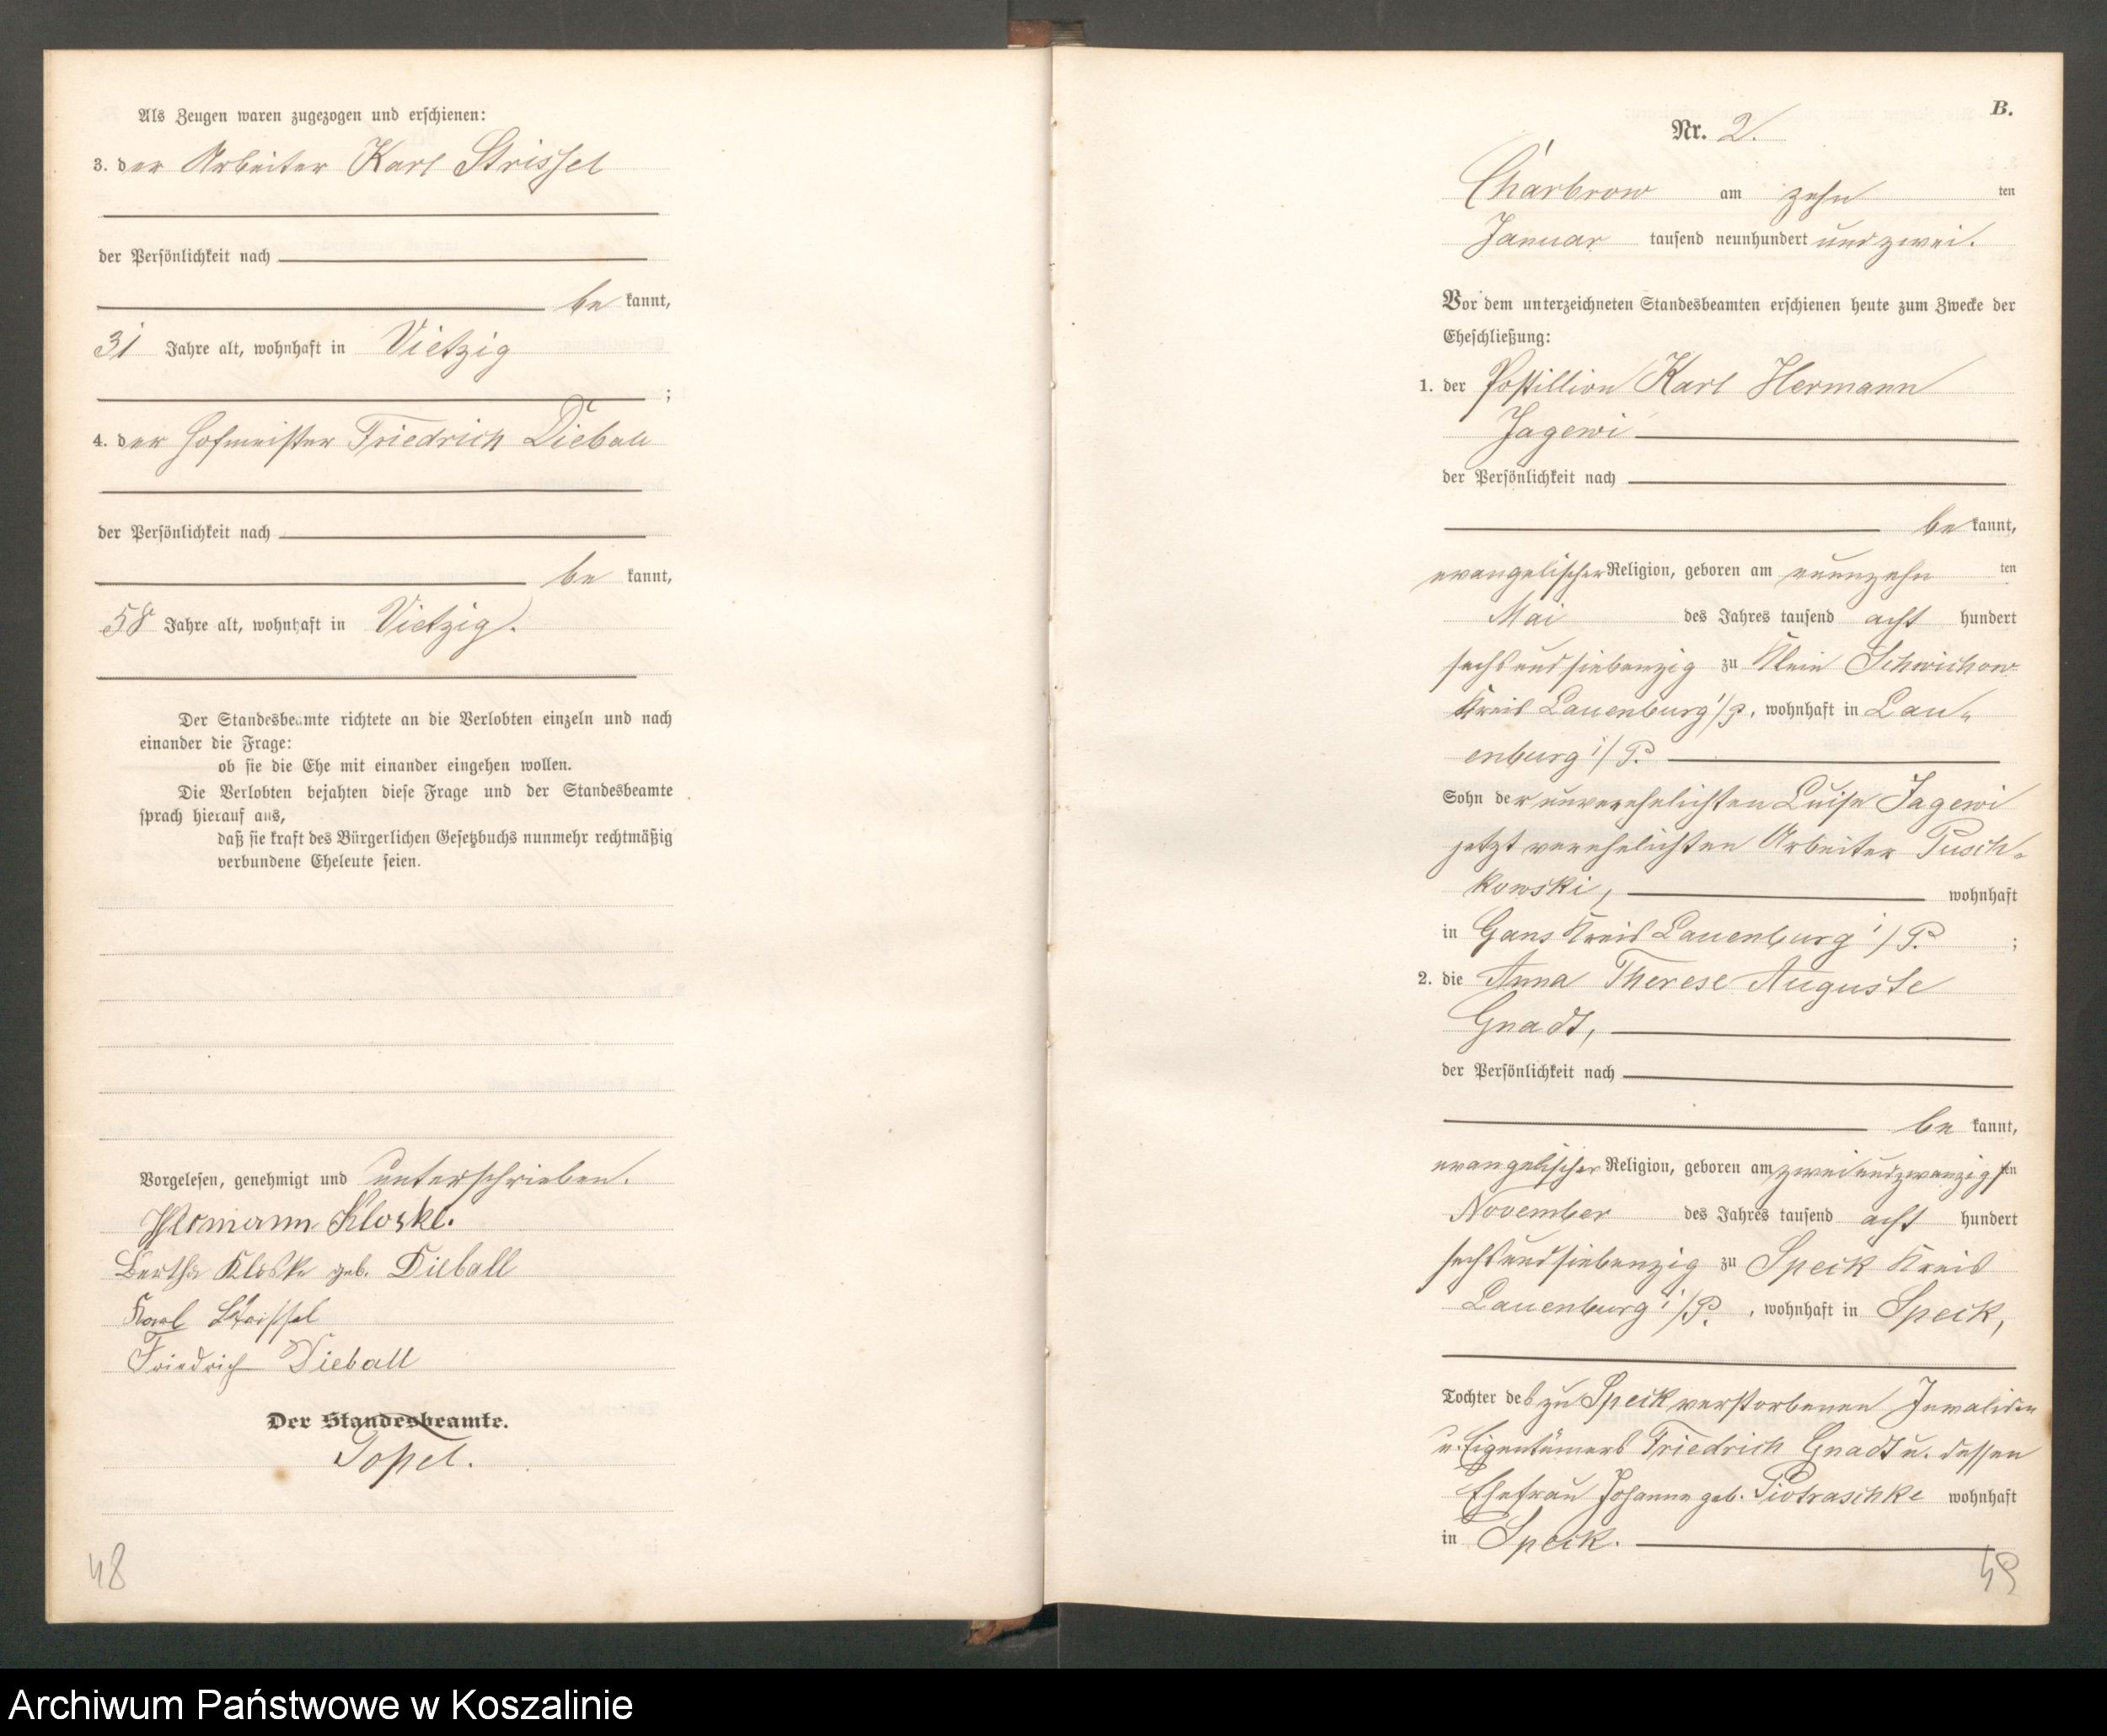 Als Zeugen waren zugezogen und erschienen:
3. der Arbeiter Karl Strissel
der Persönlichkeit nach
be kannt,
31 Jahre alt, wohnhaft in Vietzig
;
4. der Hofmeister Friedrich Dieball
der Persönlichkeit nach
be kannt,
58 Jahre alt, wohnhaft in Vietzig.
Der Standesbeamte richtete an die Verlobten einzeln und nach
einander die Frage:
ob sie die Ehe mit einander eingehen wollen.
Die Verlobten bejahten diese Frage und der Standesbeamte
sprach hierauf aus,
daß sie kraft des Bürgerlichen Gesetzbuchs nunmehr rechtmäßig
verbundene Eheleute seien.
Vorgelesen, genehmigt und unterschrieben.
Hermann Kloske.
Bertha Kloske geb. Dieball
Karl Strissel
Friedrich Dieball
Der Standesbeamte.
Topel.
48
B.
Nr. 2.
Charbrow am zehn ten
Januar tausend neunhundert und zwei.
Vor dem unterzeichneten Standesbeamten erschienen heute zum Zwecke der
Eheschließung:
1. der Postillion Karl Hermann
Jagewi
der Persönlichkeit nach
be kannt,
evangelischer Religion, geboren am neunzehn ten
Mai des Jahres tausend acht hundert
sechsundsiebenzig zu Klein Schwichow
Kreis Lauenburg i/P., wohnhaft in Lau-
enburg i/P.
Sohn der unverehelichten Luise Jagewi
jetzt verehelichten Arbeiter Pusch-
kowski, wohnhaft
in Gans Kreis Lauenburg i/P. ;
2. die Anna Therese Auguste
Gnadt,
der Persönlichkeit nach
be kannt,
evangelischer Religion, geboren am zweiundzwanzigsten
November des Jahres tausend acht hundert
sechsundsiebenzig zu Speck Kreis
Lauenburg i/P., wohnhaft in Speck,
Tochter des zu Speck verstorbenen Invaliden
u. Eigentümers Friedrich Gnadt u. dessen
Ehefrau Johanna geb. Piotraschke wohnhaft
in Speck.
49
Archiwum Państwowe w Koszalinie